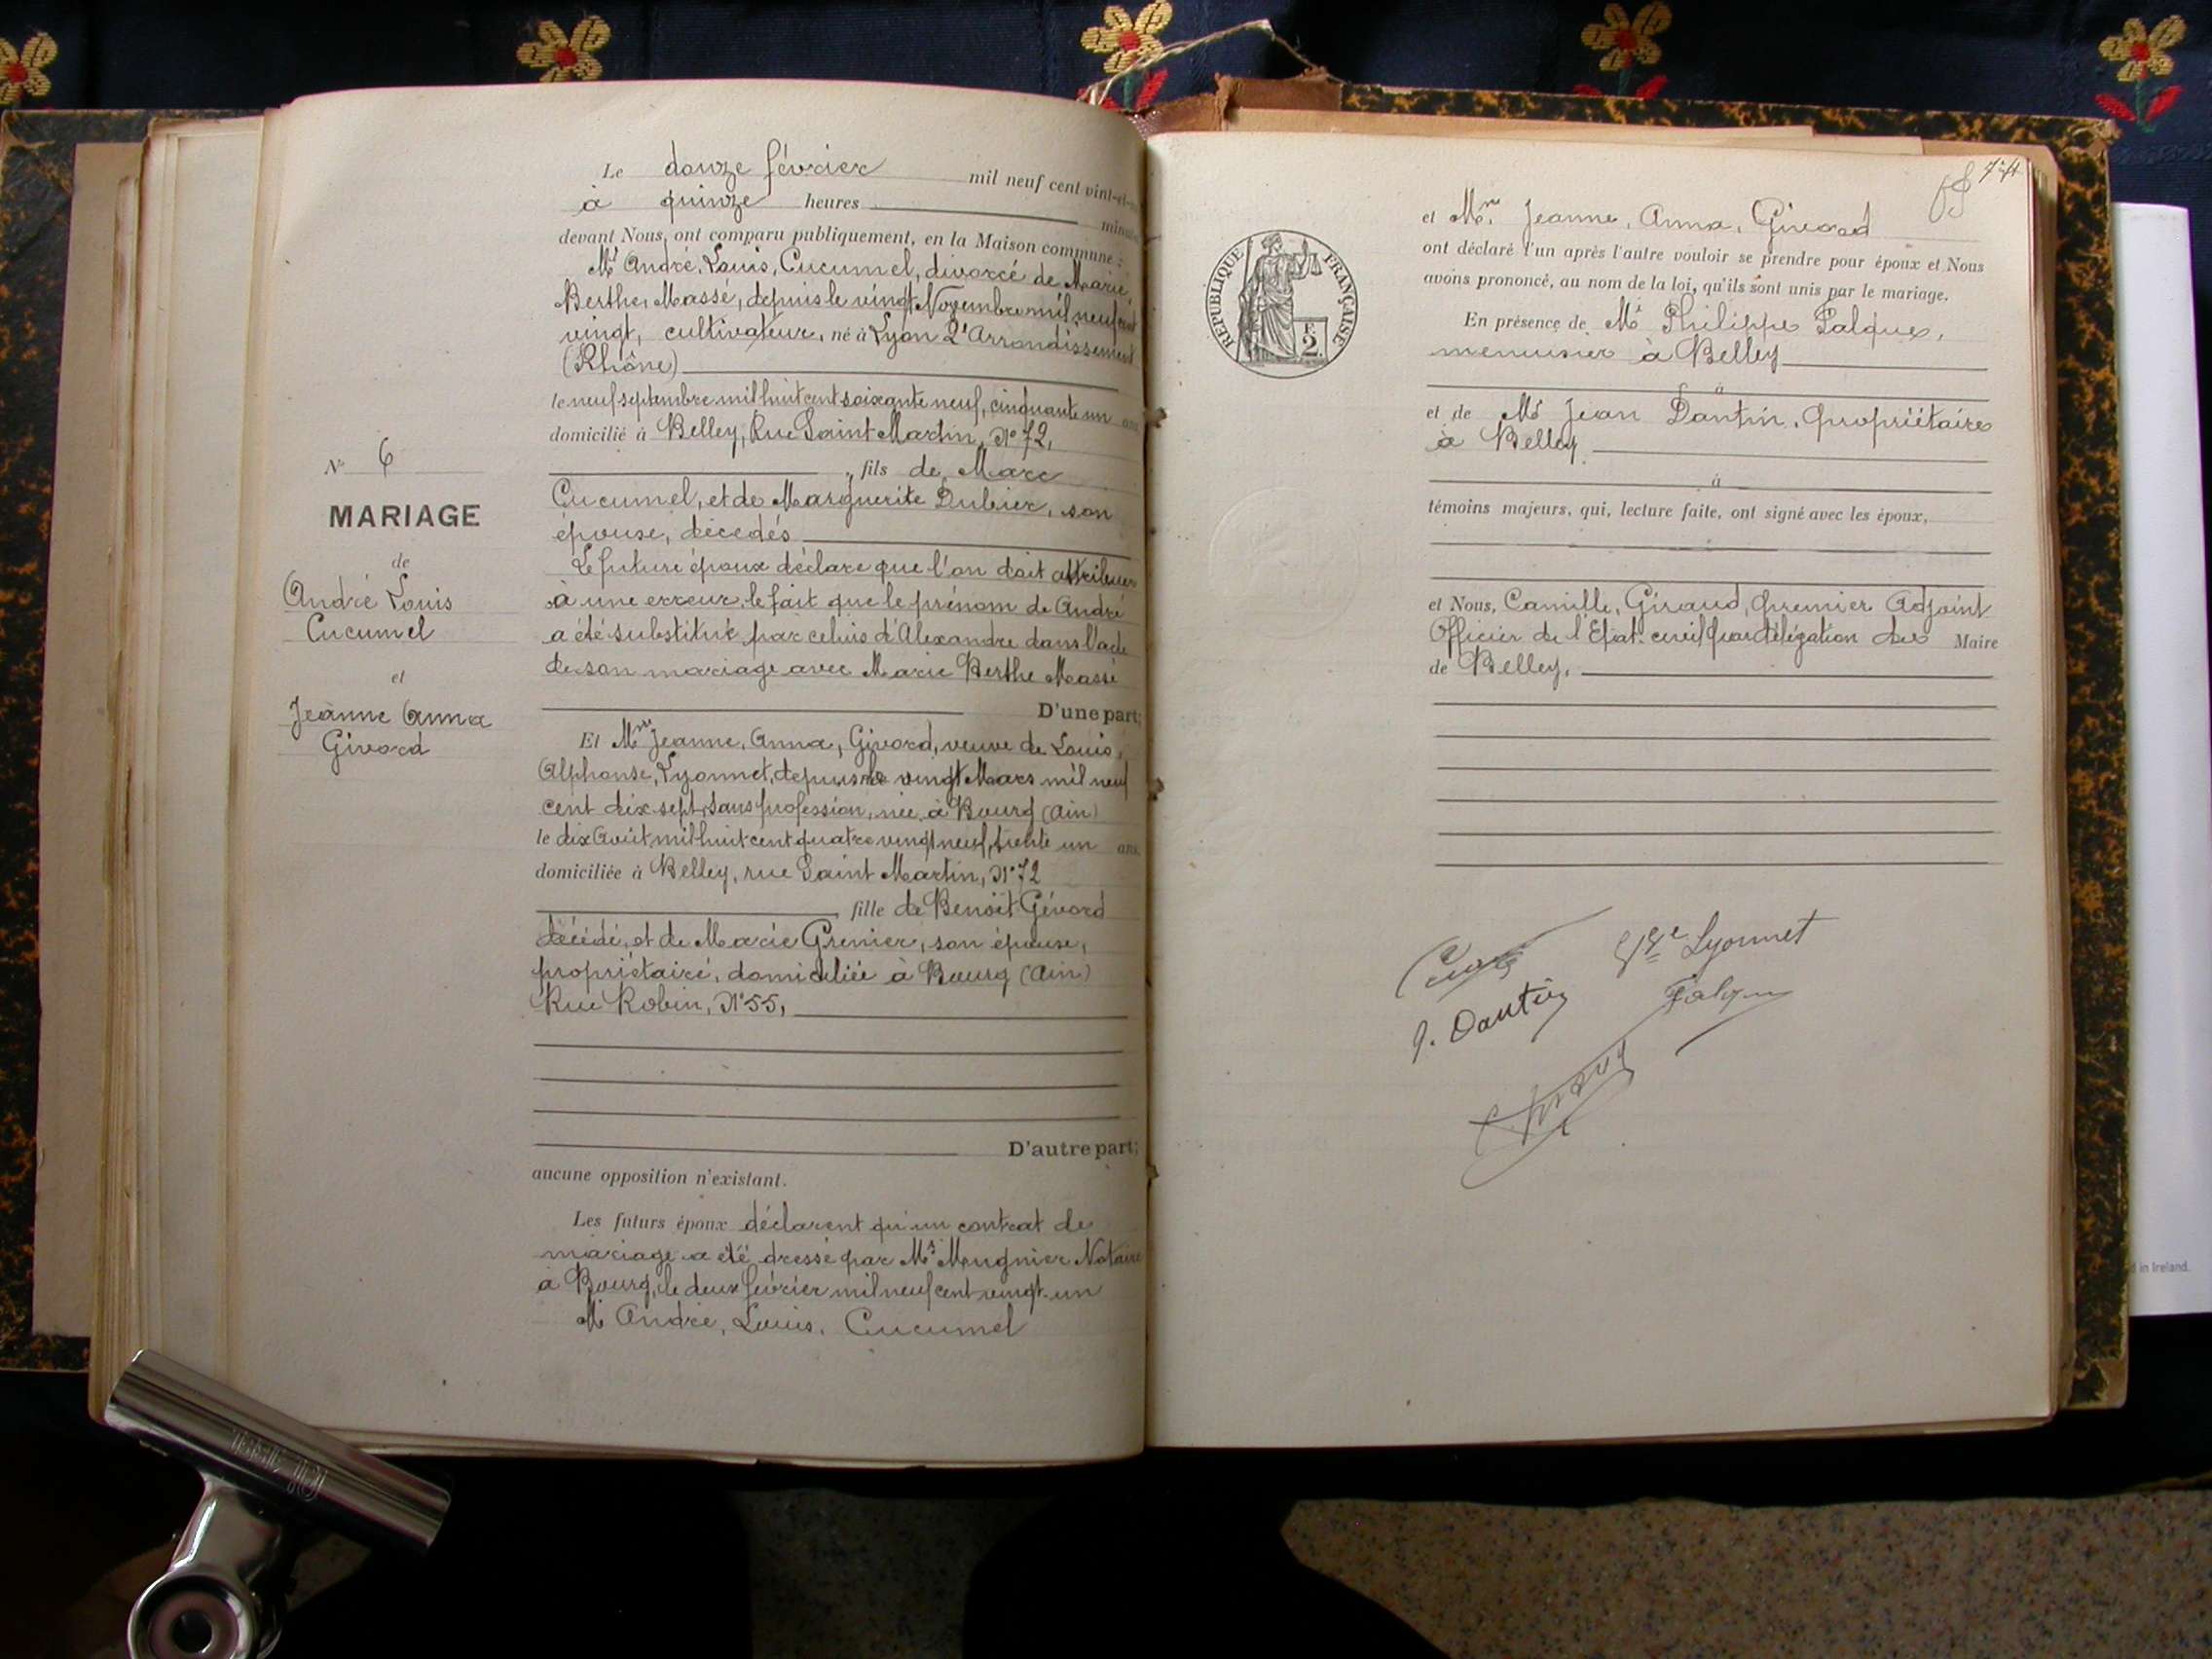 Le douze février mil neuf cent vint-et-
à quinze heures
devant Nous, ont comparu publiquement, en la Maison commune :
Mr André, Louis, Cucumel, divorcé de Marie,
Berthe, Massé, depuis le vingt Novembre mil neuf cent
vingt, cultivateur, né à Lyon 2e Arrondissement
(Rhône)
le neuf septembre mil huit cent soixante neuf, cinquante un ans
domicilié à Belley, Rue Saint Martin, No 72,
fils de Marc
Cucumel, et de Marguerite Dubier, son
épouse, décédés
Le future époux déclare que l'on doit attribuer
à une erreur, le fait que le prénom de André
a été substitué par celui d'Alexandre dans l'acte
de son mariage avec Marie Berthe Massé
D'une part;
Et Mme Jeanne, Anna, Givord, veuve de Louis,
Alphonse, Lyonnet, depuis le vingt Mars mil neuf
cent dix sept, sans profession, née à Bourg (Ain)
le dix Août mil huit cent quatre vingt neuf, trente un ans
domiciliée à Belley, rue Saint Martin, No 72
fille de Benoît Givord
décédé, et de Marie Grenier, son épouse,
propriétaire, domiciliée à Bourg (Ain)
Rue Robin, No 55,
D'autre part;
aucune opposition n'existant.
Les futurs époux déclarent qu'un contrat de
mariage a été dressé par Me Mugnier Notaire
à Bourg, le deux février mil neuf cent vingt-un
Mr André, Louis, Cucumel
No 6
MARIAGE
de
André Louis
Cucumel
et
Jeanne Anna
Givord
RÉPUBLIQUE FRANÇAISE
2
et Me Jeanne, Anna, Givord
ont déclaré l'un après l'autre vouloir se prendre pour époux et Nous
avons prononcé, au nom de la loi, qu'ils sont unis par le mariage.
En présence de Mr Philippe Falque,
menuisier à Belley
à
et de Mr Jean Dantin, propriétaire
à Belley
à
témoins majeurs, qui, lecture faite, ont signé avec les époux,
et Nous, Camille, Giraud, premier Adjoint
Officier de l'Etat-civil par délégation du Maire
de Belley,
Vve Lyonnet
J. Dantin
Falque
Giraud
in Ireland.